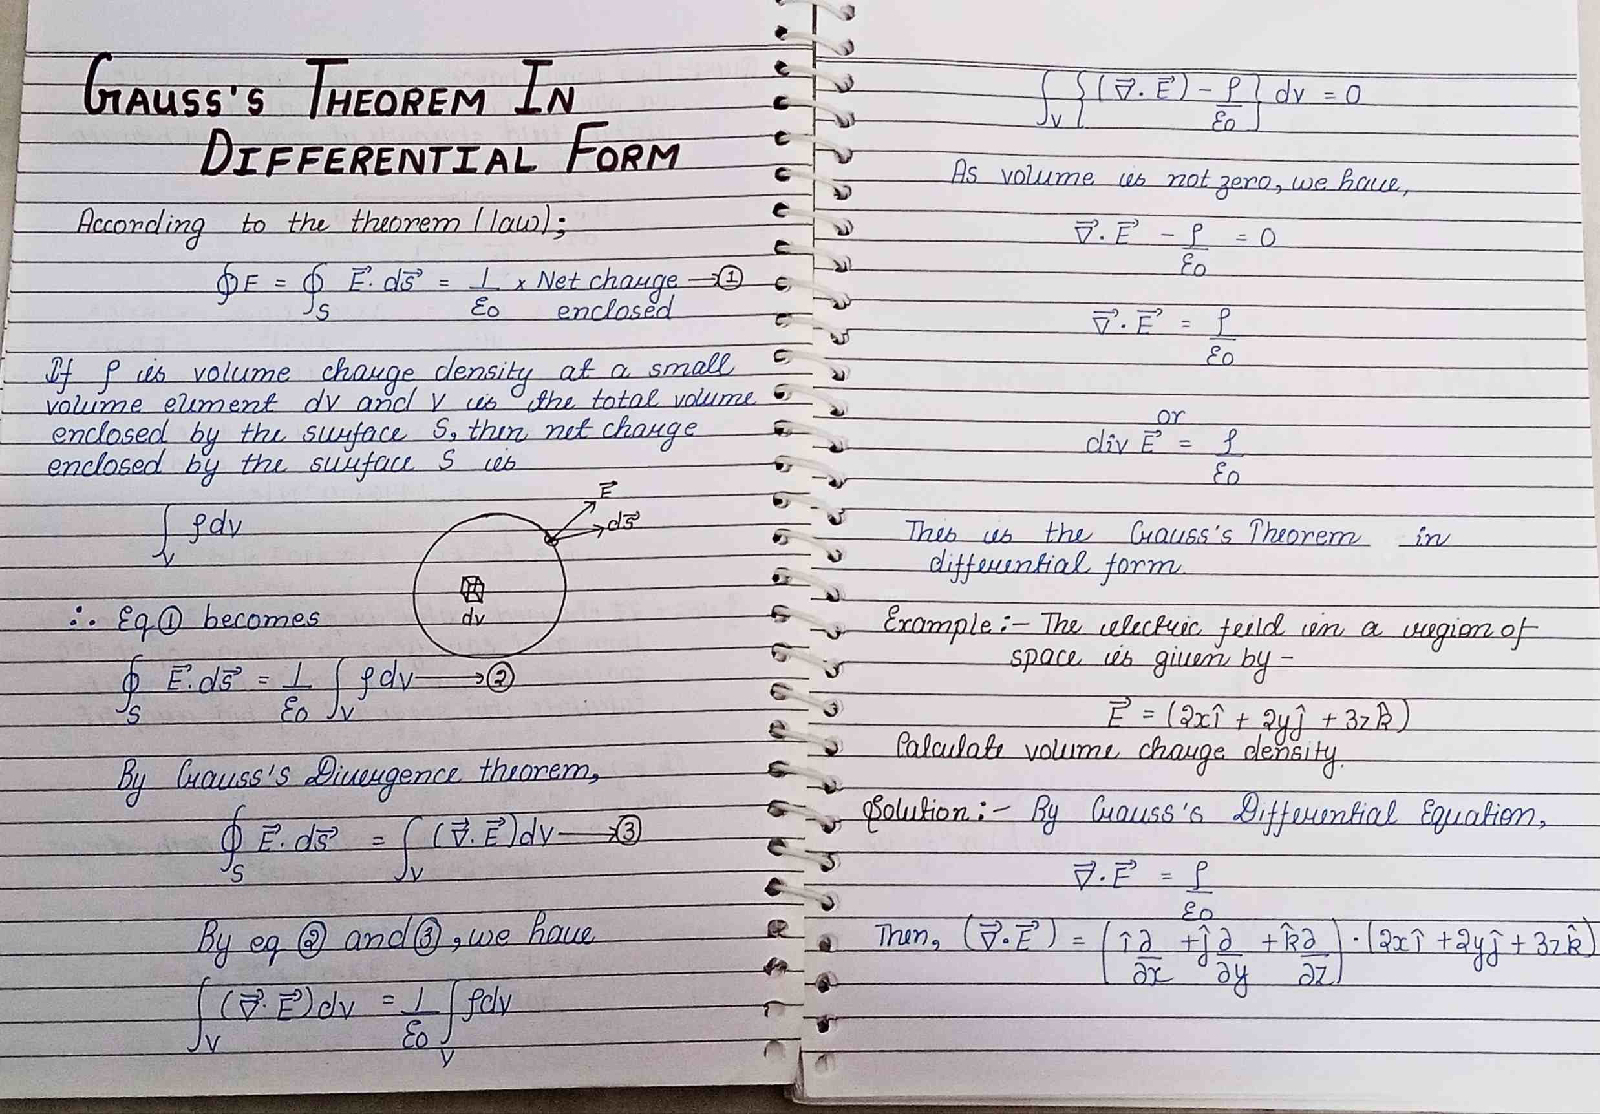 GAUSS'S THEOREM IN
DIFFERENTIAL FORM
According to the theorem (law);
∮E = ∮_S E⃗. ds⃗ = 1/ε0 x Net charge → ①
enclosed
If ρ is volume charge density at a small
volume element dv and V is the total volume
enclosed by the surface S, then net charge
enclosed by the surface S is
∫_V ρdv
E⃗
ds⃗
dv
∴ Eq ① becomes
∮_S E⃗. ds⃗ = 1/ε0 ∫_V ρdv → ②
By Gauss's Divergence theorem,
∮_S E⃗. ds⃗ = ∫_V (∇⃗. E⃗)dv → ③
By eq ② and ③, we have
∫_V (∇⃗. E⃗)dv = 1/ε0 ∫_V ρdv
∫_V {(∇⃗. E⃗) - ρ/ε0} dv = 0
As volume is not zero, we have,
∇⃗. E⃗ - ρ/ε0 = 0
∇⃗. E⃗ = ρ/ε0
or
div E⃗ = ρ/ε0
This is the Gauss's Theorem in
differential form.
Example :- The electric feild in a region of
space is given by -
E⃗ = (2xî + 2yĵ + 3zk̂)
Calculate volume charge density.
Solution :- By Gauss's Differential Equation,
∇⃗. E⃗ = ρ/ε0
Then, (∇⃗. E⃗) = (î∂/∂x + ĵ∂/∂y + k̂∂/∂z) . (2xî + 2yĵ + 3zk̂)